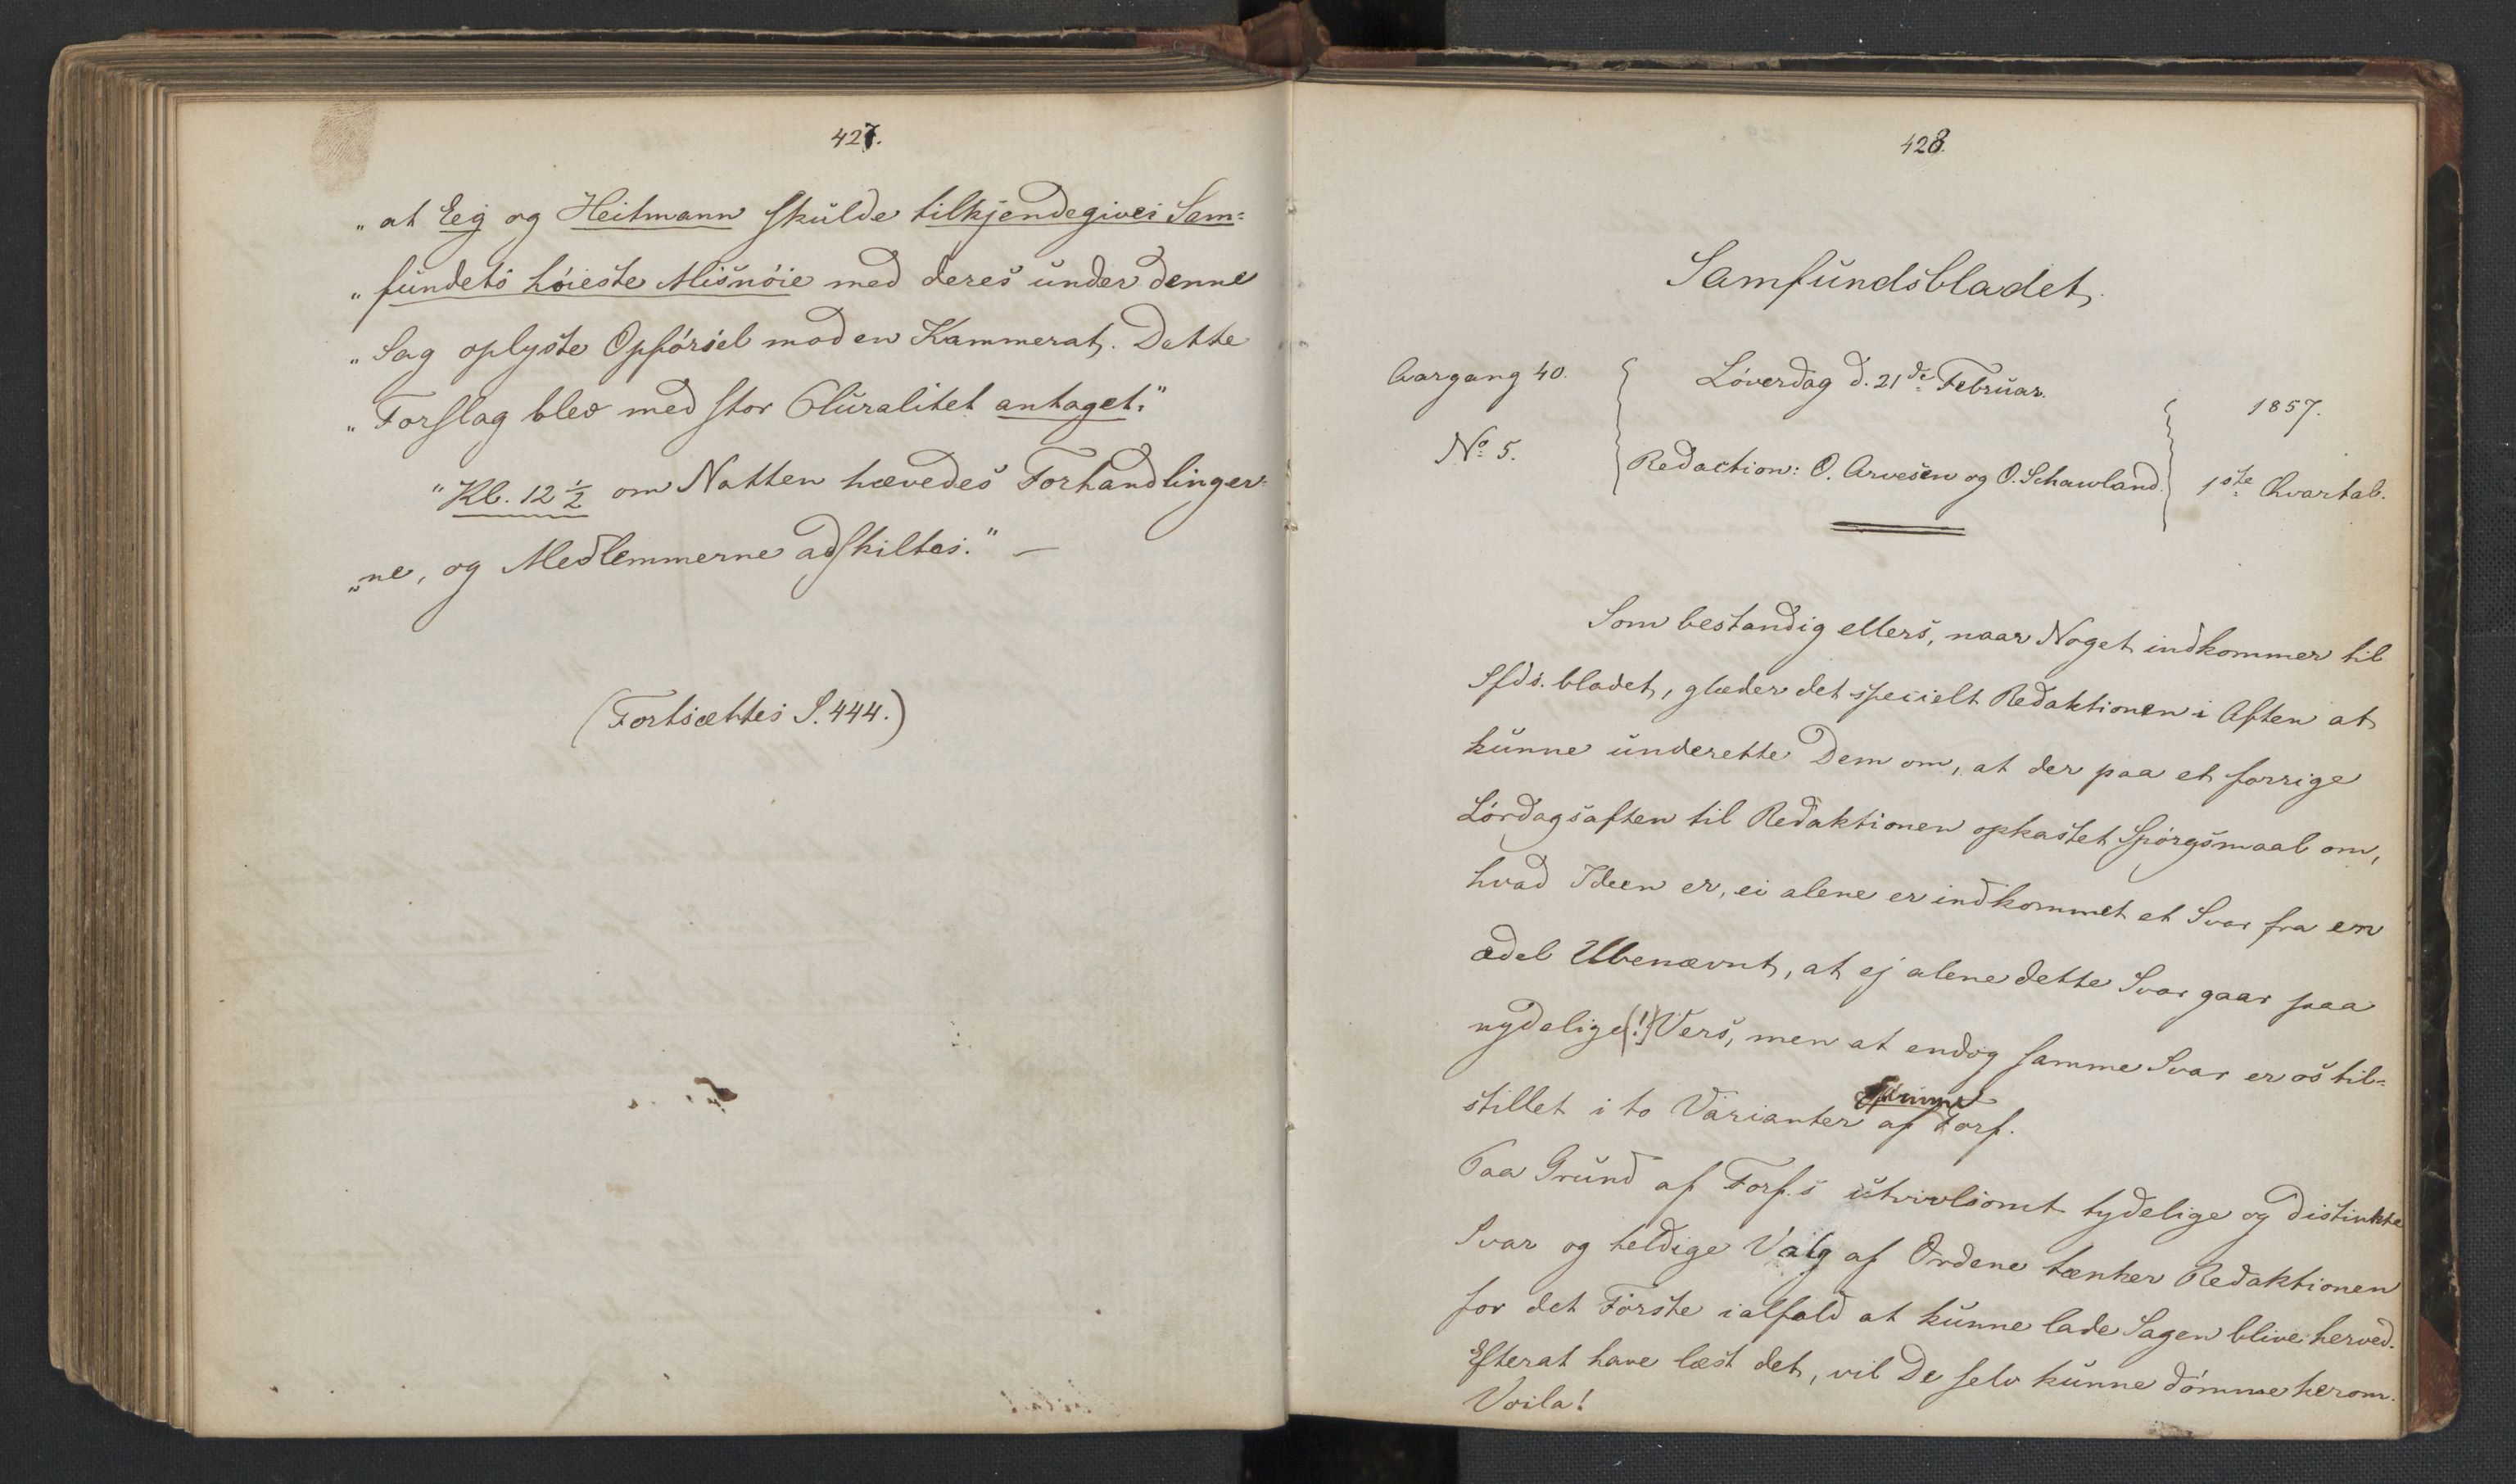 427.
„at Eeg og Heitmann skulde tilkjendegives Sam-
„fundets høieste Misnøie med deres under denne
„Sag oplyste Opførsel mod en Kammerat. Dette
„Forslag blev med stor Pluralitet antaget."
"Kl. 12 1/2 om Natten hævedes Forhandlinger-
„ne, og Medlemmerne adskiltes." —
(Fortsættes S. 444.)
428.
Samfundsbladet.
Aargang 40.
No 5.
Løverdag d. 21de Februar.
Redaction: O. Arvesen og O. Schawland.
1857.
1ste Qvartal.
Som bestandig ellers, naar Noget indkommer til
Sfds. bladet, glæder det specielt Redaktionen i Aften at
kunne underette Dem om, at der paa et forrige
Lørdagsaften til Redaktionen opkastet Spørgsmaal om,
hvad Ideen er, ei alene er indkommet et Svar fra en
ædel Ubenævnt, at ej alene dette Svar gaar paa
nydelige (!) Vers, men at endog samme Svar er os til-
stillet i to Varianter af samme Forf.
Paa Grund af Forf.s utvivlsomt tydelige og distinkte
Svar og heldige Valg af Ordene tænker Redaktionen
for det Første ialfald at kunne lade Sagen blive herved.
Efterat have læst det, vil De selv kunne dømme herom.
Voila!